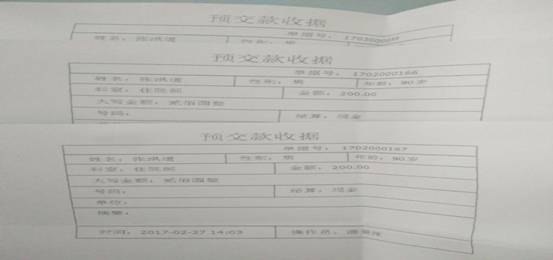 预交款收据
单据号：
姓名：张洪道 性别：男
预交款收据
单据号：1702000166
姓名：张洪道 性别：男 年龄：90岁
科室：住院部 金额：200.00
大写金额：贰佰圆整
号码： 结算：现金
预交款收据
单据号：1702000167
姓名：张洪道 性别：男 年龄：90岁
科室：住院部 金额：200.00
大写金额：贰佰圆整
号码： 结算：现金
单位：
摘要：
时间：2017-02-27 14:03 操作员：